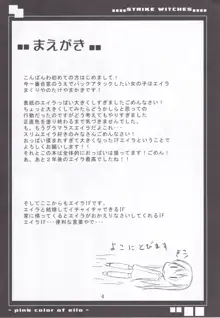 STRIKE WITCHES
まえがき
こんばんわ初めての方はじめまして!
今一番合意のうえでバックアタックしたい女の子はエイラ
まくりやのたけやまかきです!
表紙のエイラっぱい大きくしすぎましたごめんなさい!
ちょっと大きくしてみたらどうかしらと思っての
行動だったのですがどうもそれ所じゃすみませんでした。
正直色を塗り終わるまで気づきませんでした。
もう、もうグラマラスエイラだよこれ!
スリムエイラ好きの方にはごめんなさい!
おっぱい揉まれすぎて大きくなったIFエイラということで
それとこの本は全体的におっぱいは盛ってます!ごめん!
あ、あと2年後エイラ最高でしたね!
そしてここからもエイラです。
エイラと結婚してイチャイチャできるIF
家に帰ってくるとエイラがおかえりなさいしてくれるIF
エイラIF・・便利な言葉やで・・
よこにとびます
4
- pink color of eila -